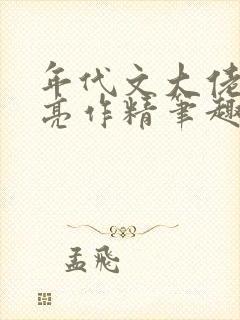 年代文大佬
亮作精筆趣
孟飛